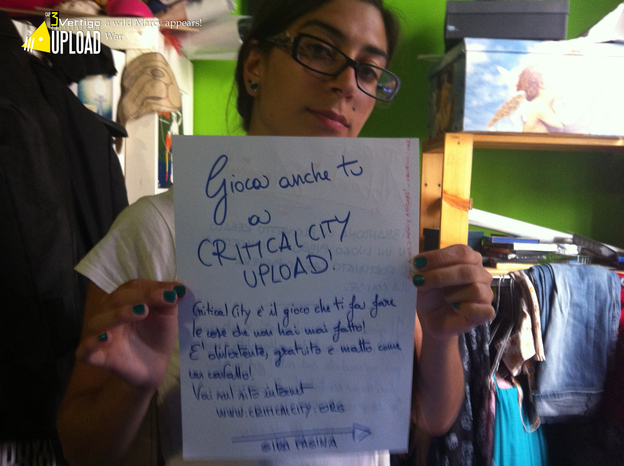 3
Vertigo a wild Mary appears!
UPLOAD War
Gioca anche tu
a
CRITICAL CITY
UPLOAD!
Critical City è il gioco che ti fa fare
le cose che non hai mai fatto!
E' divertente, gratuito e matto come
un cavallo!
Vai sul sito internet
WWW.CRITICALCITY.ORG
GIRA PAGINA